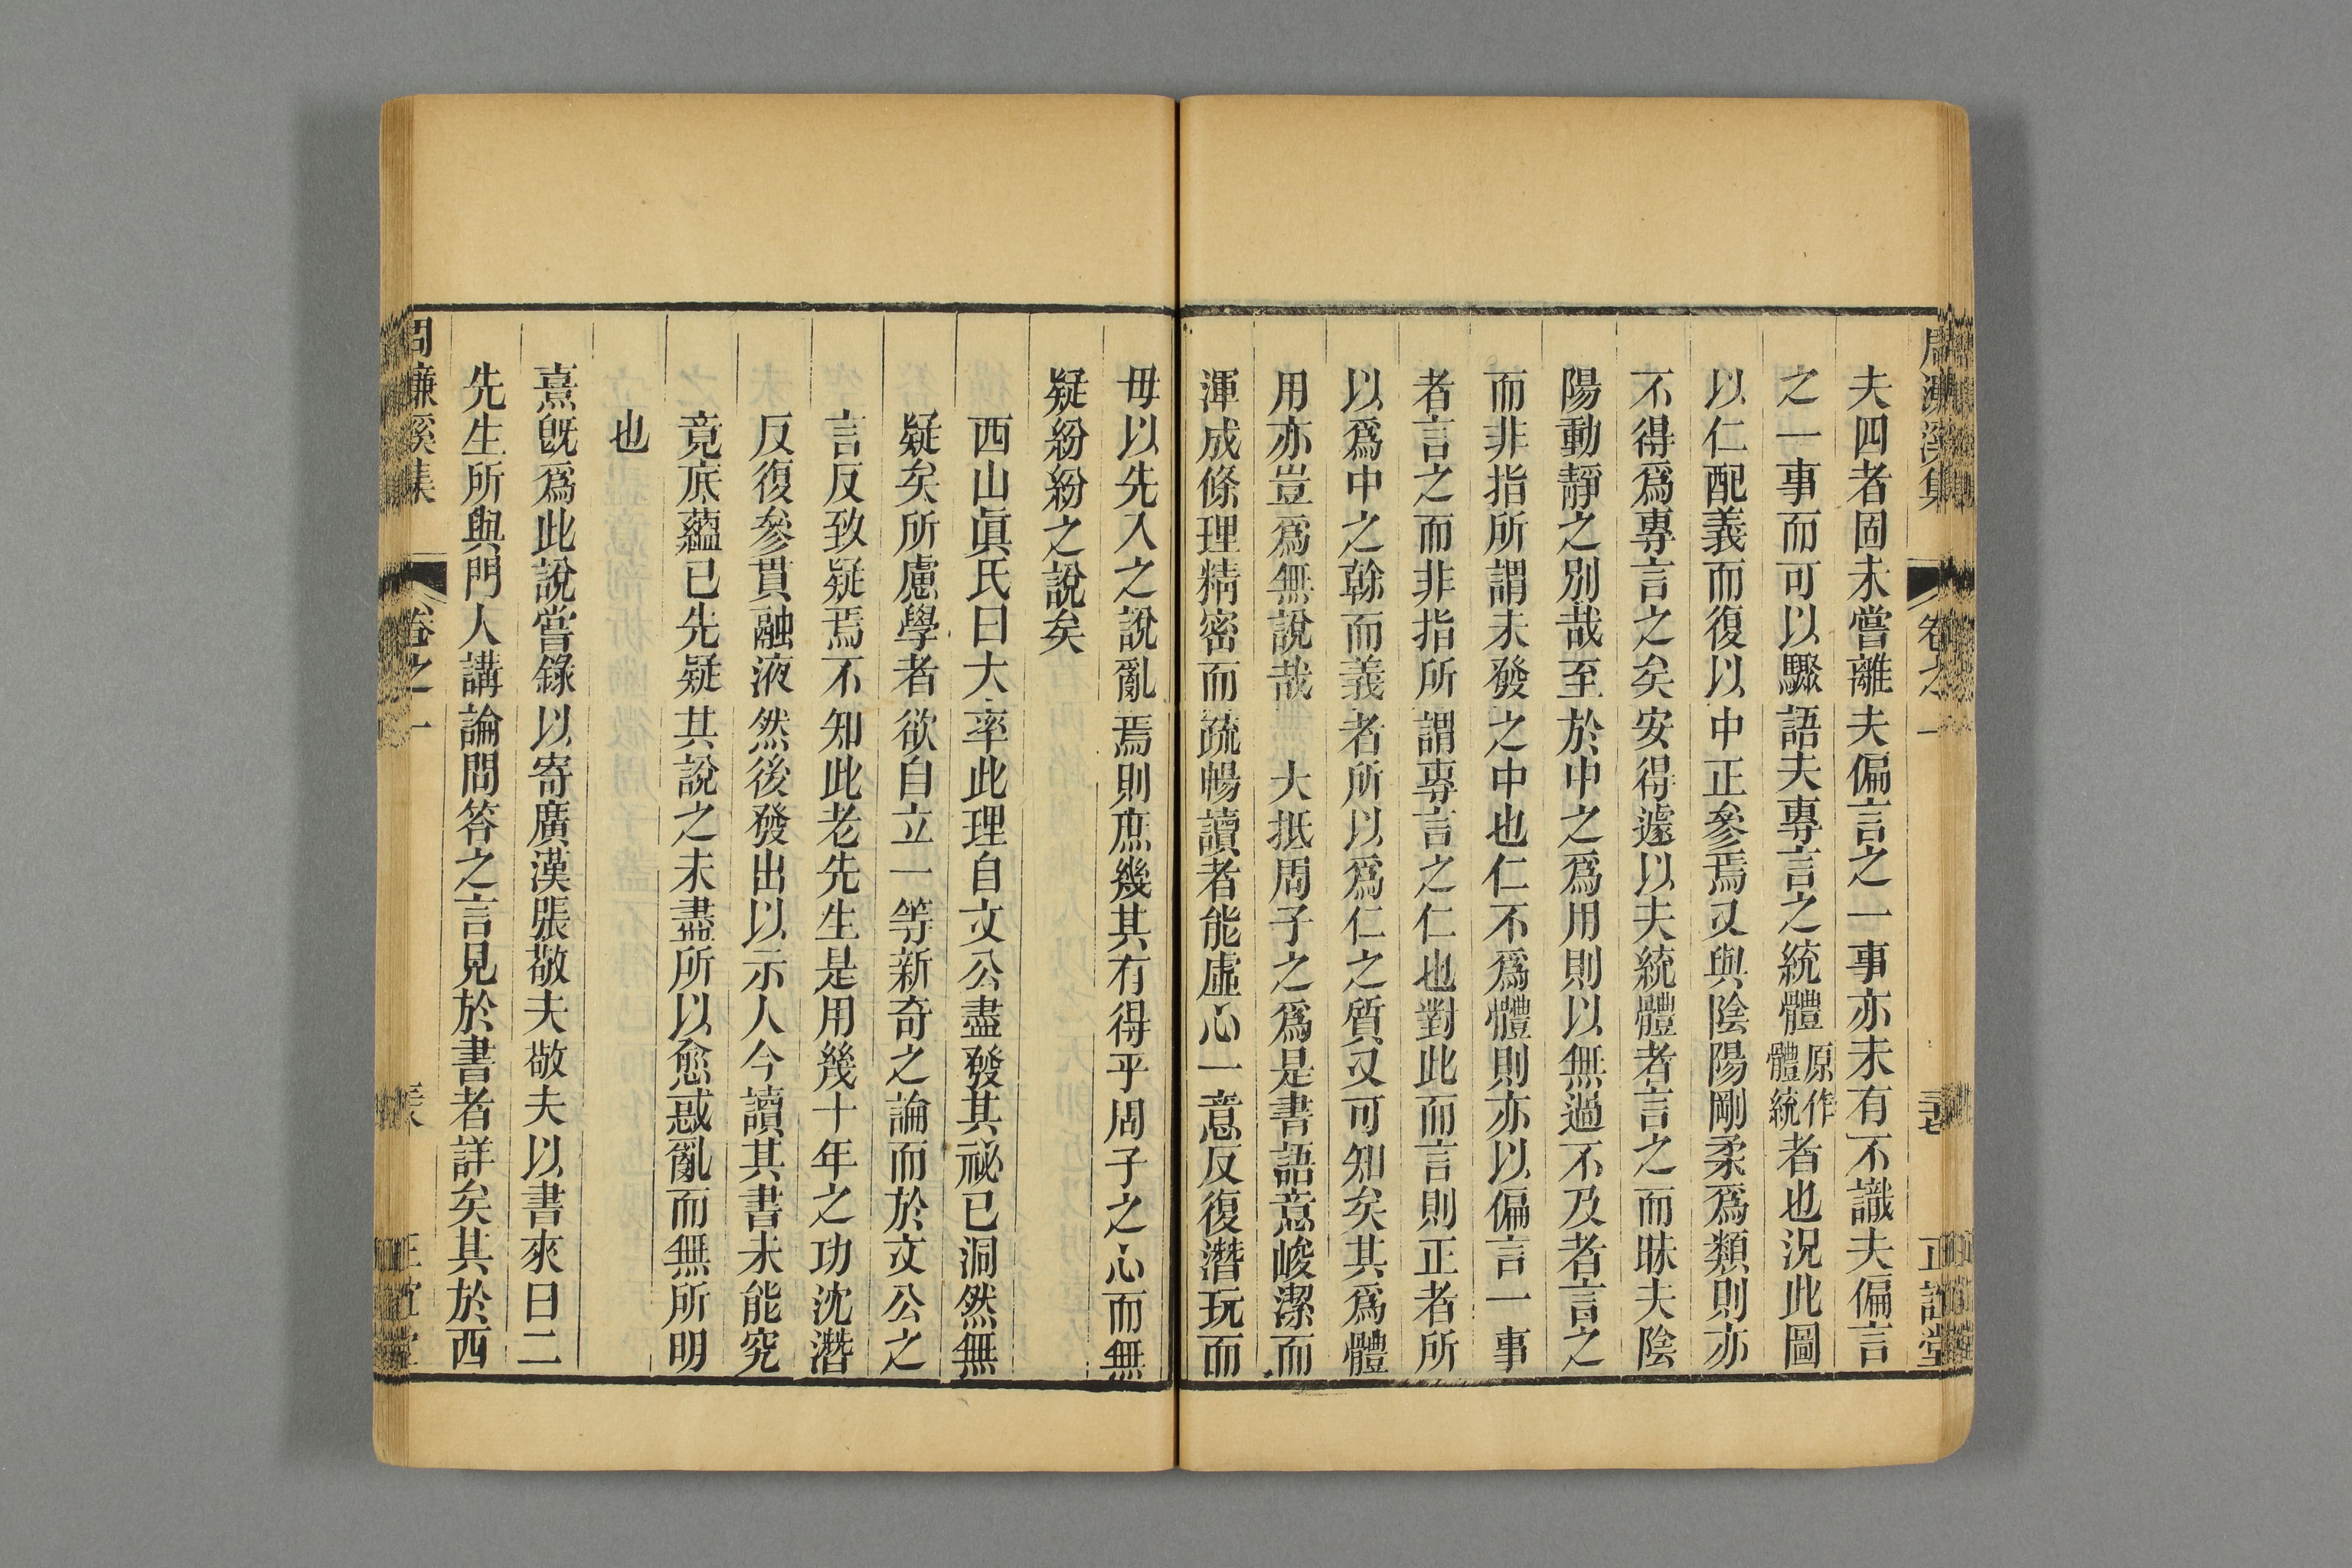 周濂溪集 卷之一 正誼堂
夫四者固未嘗離夫偏言之一事亦未有不識夫偏言
之一事而可以驟語夫專言之統體原作體統者也況此圖
以仁配義而復以中正參焉又與陰陽剛柔爲類則亦
不得爲專言之矣安得遽以夫統體者言之而昧夫陰
陽動靜之別哉至於中之爲用則以無過不及者言之
而非指所謂未發之中也仁不爲體則亦以偏言一事
者言之而非指所謂專言之仁也對此而言則正者所
以爲中之榦而義者所以爲仁之質又可知矣其爲體
用亦豈爲無說哉 大抵周子之爲是書語意峻潔而
渾成條理精密而疏暢讀者能虛心一意反復潛玩而
毋以先入之說亂焉則庶幾其有得乎周子之心而無
疑紛紛之說矣
西山眞氏曰大率此理自文公盡發其祕已洞然無
疑矣所慮學者欲自立一等新奇之論而於文公之
言反致疑焉不知此老先生是用幾十年之功沈潛
反復參貫融液然後發出以示人今讀其書未能究
竟底蘊已先疑其說之未盡所以愈惑亂而無所明
也
熹旣爲此說嘗錄以寄廣漢張敬夫敬夫以書來曰二
先生所與門人講論問答之言見於書者詳矣其於西
周濂溪集 卷之一